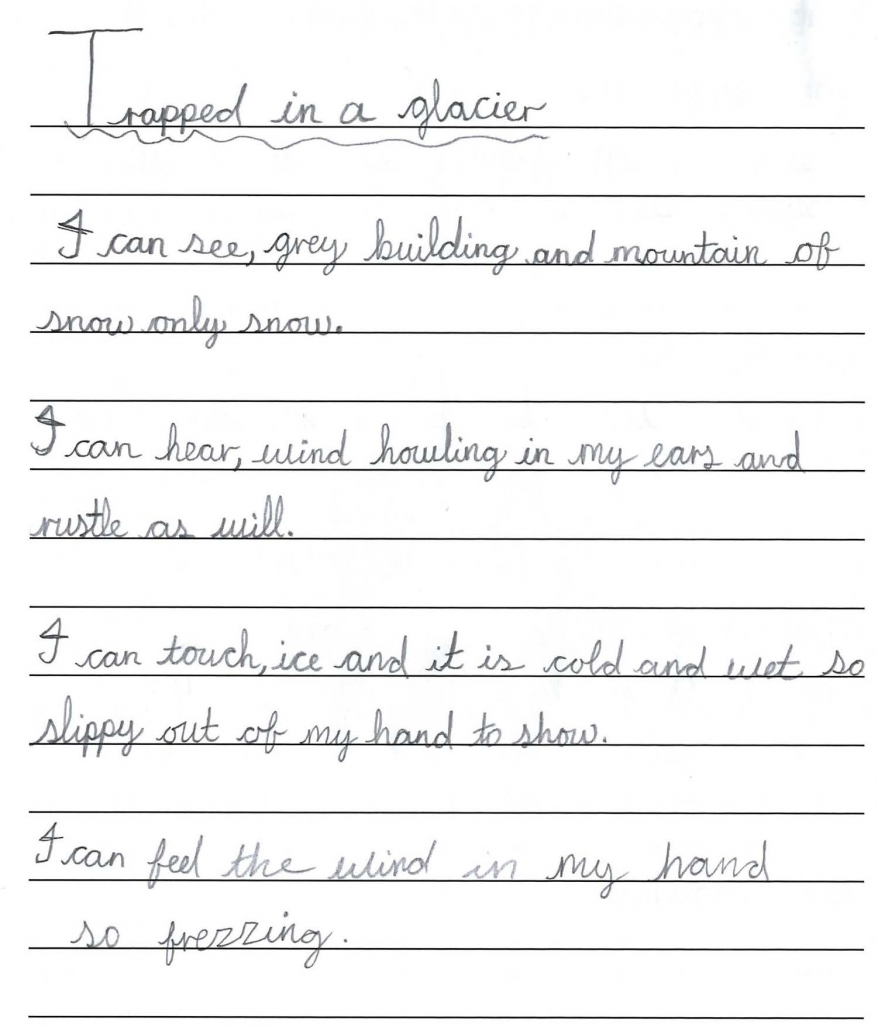 Trapped in a glacier
I can see, grey building and mountain of
snow only snow.
I can hear, wind howling in my ears and
rustle as will.
I can touch, ice and it is cold and wet so
slippy out of my hand to show.
I can feel the wind in my hand
so frezzing.